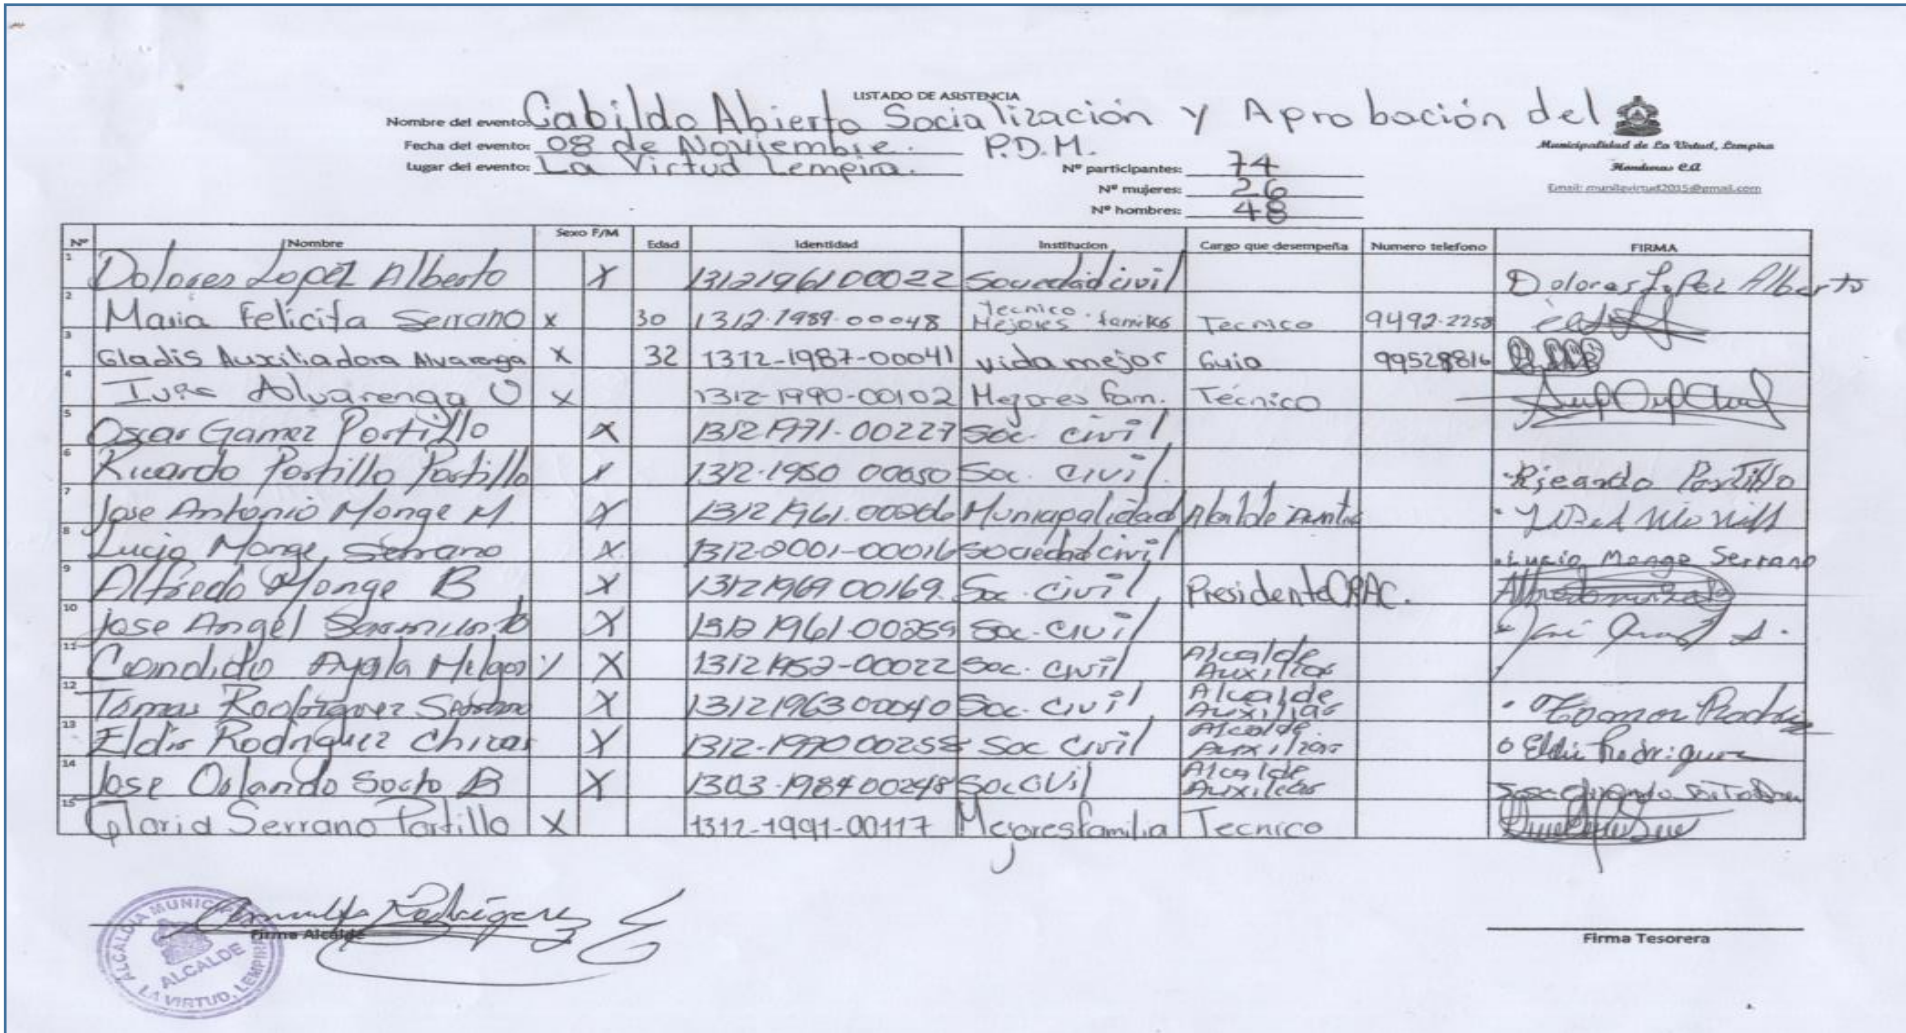 LISTADO DE ASISTENCIA
Nombre del evento: Cabildo Abierto Socialización y Aprobación del
Fecha del evento: 08 de Noviembre. P.D.M.
Lugar del evento: La Virtud Lempira.
Nº participantes: 74
Nº mujeres: 26
Nº hombres: 48
Municipalidad de La Virtud, Lempira
Honduras C.A
Email: munilavirtud2015@gmail.com
Nº Nombre Sexo F/M Edad Identidad Institucion Cargo que desempeña Numero telefono FIRMA
1 Dolores Lopez Alberto X 1312196100022 Sociedad civil Dolores Lopez Alberto
2 Maria Felicita Serrano x 30 1312-1989-00048 Tecnico Mejores familias Tecnico 9492-2258
3 Gladis Auxiliadora Alvarenga X 32 1312-1987-00041 vida mejor Guia 99528816
4 Alvarenga O x 1312-1990-00102 Mejores fam. Técnico
5 Oscar Gamez Portillo X 13121971-00227 Soc. civil
6 Ricardo Portillo Portillo X 1312-1980 00650 Soc. civil. Ricardo Portillo
7 Jose Antonio Monge M. X 1312 1961.00206 Municipalidad Alcalde
8 Lucio Monge Serrano X 1312-2001-00016 Sociedad civil Lucio Monge Serrano
9 Alfredo Monge B X 13121969 00169. Soc. civil, Presidente
10 Jose Angel Sarmiento X 1312 1961-00259 Soc. civil
11 Candido Ayala X 1312 1952-00022 Soc. civil Alcalde Auxiliar
12 Tomas Rodriguez X 1312196300040 Soc. civil Alcalde Auxiliar
13 Eldis Rodriguez Chicas X 1312-1990 00258 Soc civil Alcalde Auxiliar Eldis Rodriguez
14 Jose Orlando Socto B X 1303-1984 00248 Soc Civil Alcalde Auxiliar
15 Gloria Serrano Portillo X 1312-1991-00117 Mejores familia Tecnico
Firma Alcalde
Firma Tesorera
ALCALDIA MUNICIPAL
ALCALDE
LA VIRTUD, LEMPIRA